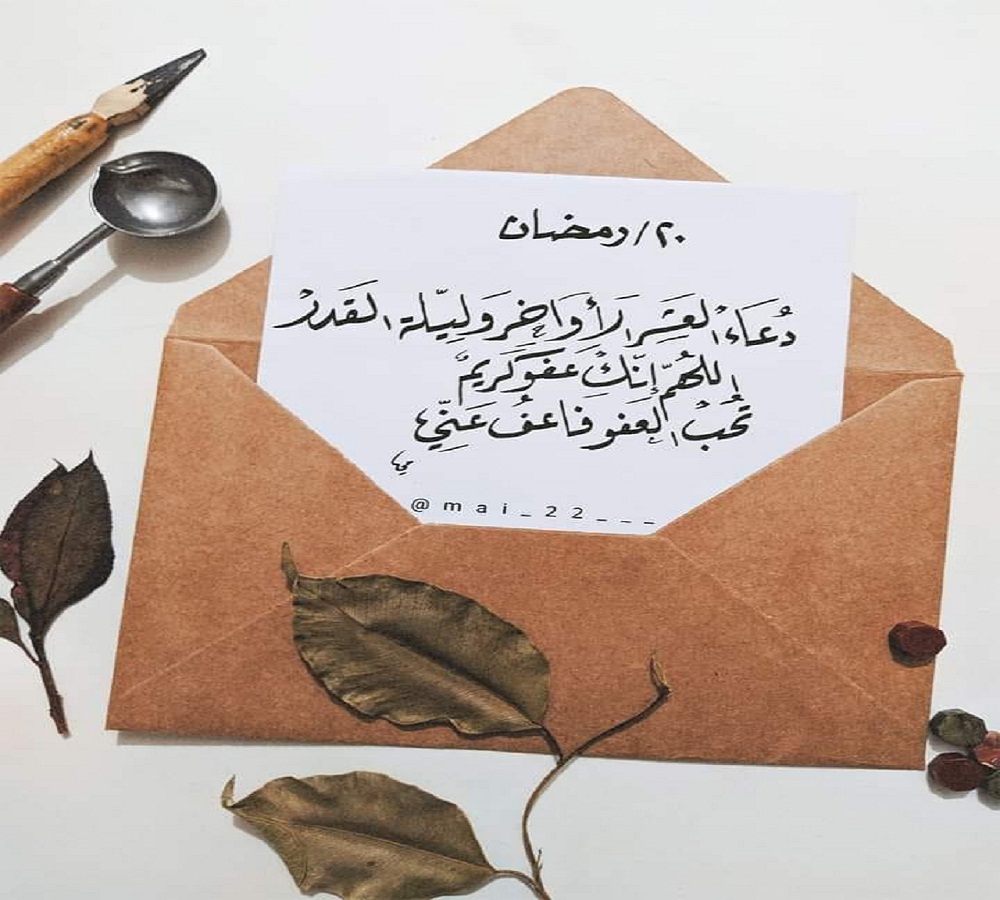 ٢٠/رمضان
دُعَاءْ العَشِر الأَوَاخِر وَلِيّلة القَدرْ
اللهُمّ إنّكْ عَفوَكَريمّ
تُحبْ العَفو فاعفُ عَنِّي
مي
@mai_22___